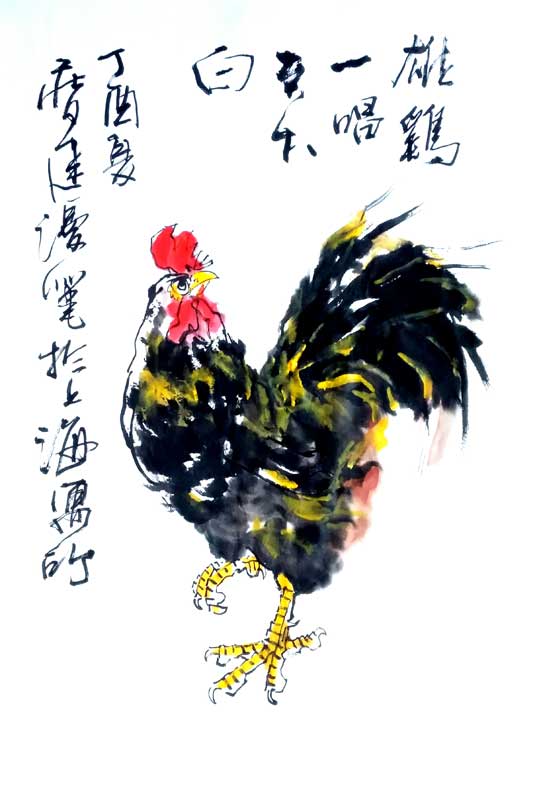 雄鷄
一唱
天大
白
丁酉夏
建漫筆於上海寓所